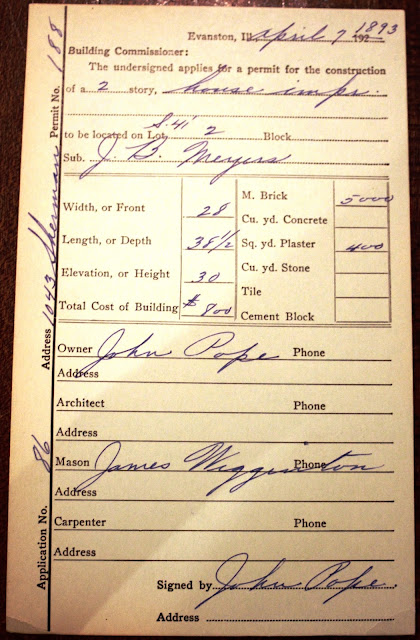 Evanston, Ill. april 7 192 1893
Building Commissioner:
The undersigned applies for a permit for the construction
of a 2 story, house impr.
S. 41'
to be located on Lot 2 Block
Sub. J. B. Meyers
Width, or Front 28
Length, or Depth 38 1/2
Elevation, or Height 30
Total Cost of Building $ 800
M. Brick 5000
Cu. yd. Concrete
Sq. yd. Plaster 400
Cu. yd. Stone
Tile
Cement Block
Owner John Pope Phone
Address
Architect Phone
Address
Mason James Wigginton Phone
Address
Carpenter Phone
Address
Signed by John Pope.
Address
Application No. 86 Address 1043 Sherman Permit No. 188